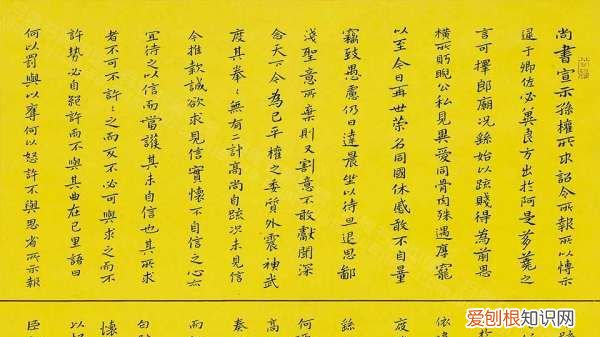 尚書宣示孫權所求詔令所報所以博示
逮于卿佐必冀良方出於阿是芻蕘之
言可擇郎廟況繇始以疎賤得為前恩
橫所盻睨公私見異愛同骨肉殊遇厚寵
以至今日再世榮名同國休慼敢不自量
竊致愚慮仍日達晨坐以待旦退思鄙
淺聖意所棄則又割意不敢獻聞深
念天下今為已平權之委質外震神武
度其拳々無有二計高尚自疏況未見信
今推款誠欲求見信實懷不自信之心亦
宜待之以信而當護其未自信也其所求
者不可不許々之而反不必可與求之而不
許勢必自絕許而不與其曲在已里語曰
何以罰與以奪何以怒許不與思省所示報
於
依
夜
繇
何
高
奏
而
懷
以
臣
爱刨根知识网